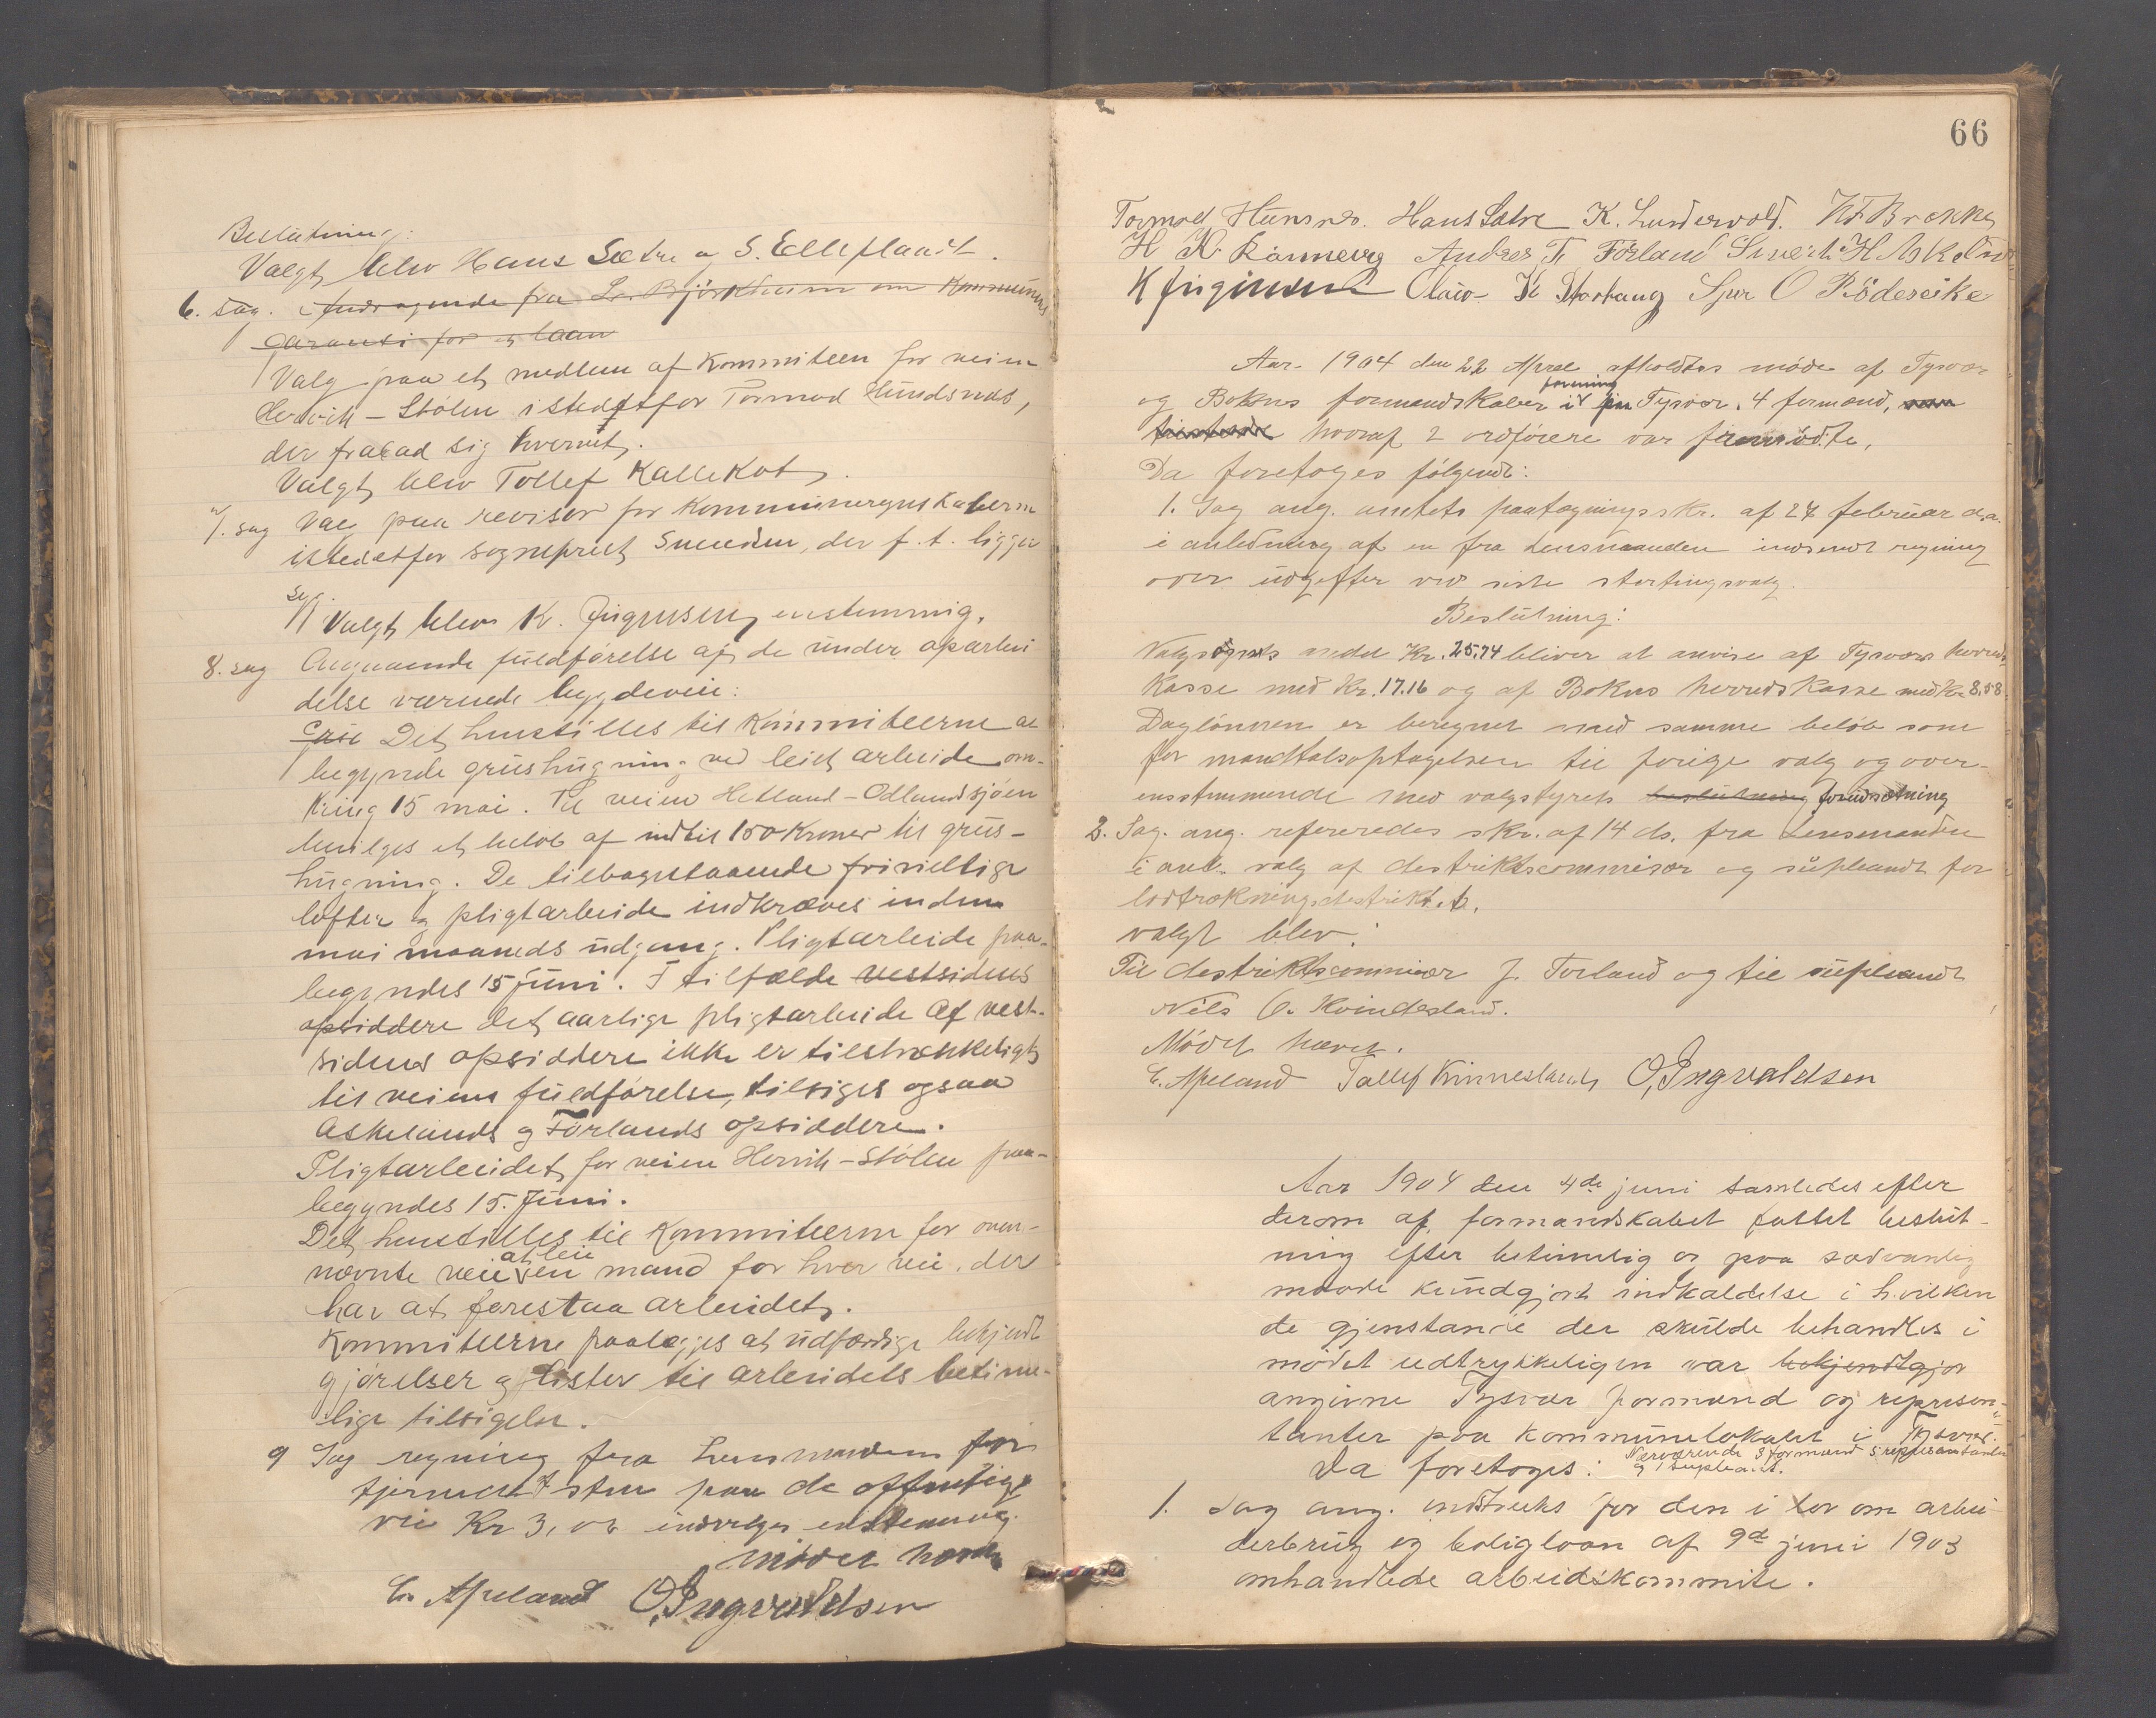 Beslutning:
Valgt blev Hans Sætre og S. Elleflaadt.
6. sag. Andragende fra L. Bjørkheim om Kommunens
garanti for et laan
Valg paa et medlem af Kommiteen for veien
Hervik - Stölen istedetfor Tormod Hundsnes,
der frabad sig hvervet.
Valgt blev Tollef Kallekot.
7. sag Valg paa revisor for Kommuneregnskaberne
istedetfor sogneprest Sneeden, der f. t. ligger
syg.
Valgt blev K. Jngensen enstemmig.
8. sag Angaaende fuldförelse af de under oparbei
delse værende bygdeveie:
Det henstilles til Kommiteerne at
begynde grushugning ved leiet arbeide om-
kring 15 mai. Til veien Hetland - Odlandsjöen
bevilges et belöb af indtil 150 Kroner til grus-
hugning. De tilbagestaaende frivillige
löfter og pligtarbeide indkræves inden
mai maaneds udgang. Pligtarbeide paa-
begyndes 15 juni. I tilfælde vestsidens
opsiddere det aarlige pligtarbeide af vest-
sidens opsiddere ikke er tilstrækkeligt
til veiens fuldförelse, tilsiges ogsaa
Askelands og Förlands opsiddere.
Pligtarbeidet for veien Hervik - Stölen paa-
begyndes 15. Juni.
Det henstilles til Kommiteerne for oven-
nævnte veie at leie en mand for hver vei, der
har at forestaa arbeidet.
Kommiteerne paalægges at udfærdige bekjendt
gjörelser og lister til arbeidets betime-
lige tilsigelse.
9 Sag regning fra Lensmanden for
fjernelse af sten paa de offentlige
vei Kr 3,00 indvilges enstemmig.
Mödet hævet
L. Apeland O. Ingvaldsen
66
Tormod Hunsnes. Hans Sætre K. Lundervold. K F Brekke
H N Rönnevig Andres T. Förland Sivert H Askeland
K Jngensen Olav K Storhaug Sjur O Rödeseike
Aar 1904 den 22 April afholdtes möde af Tysvær
og Bokns formandskaber i forening i Tysvær. 4 formænd,
hvoraf 2 ordförere var fremmödte,
Da foretoges fölgende:
1. Sag ang. amtets paategningsskr. af 27 februar d.a.
i anledning af en fra Lensmanden indsendt regning
over udgifter ved siste stortingsvalg.
Beslutning:
Valgsognets andel Kr. 25.74 bliver at anvise af Tysvær herreds-
kasse med Kr. 17.16 og af Bokns herredskasse med Kr 8.58
Daglönnen er beregnet med samme belöb som
for mandtalsoptagelsen til forige valg og over-
ensstemmende med valgstyrets beslutning forudsætning
2. Sag. ang. refereredes skr. af 14 ds. fra Lensmanden
i anl. valg af destriktscommisær og supleandt for
lodtrækningsdestriktet.
valgt blev:
Til destriktscommisær J. Förland og til supleandt
Nils O. Kvindesland.
Mödet hævet.
L. Apeland Tollef Kinnesland O. Ingvaldsen
Aar 1904 den 4de juni samledes efter
derom af formandskabet fattet beslut-
ning efter betimelig og paa sædvanlig
maade kundgjort indkaldelse i hvilken
de gjenstande der skulde behandles i
mödet udtrykkeligen var bekjendtgjor
angivne Tysvær formænd og represen-
tanter paa Kommunelokalet i Tysvær.
Da foretoges: Nærværende 3 formænd 5 representanter
og 1 supleant.
1. Sag ang. indstruks for den i lov om arbei
derbrug og boliglaan af 9de juni 1903
omhandlede arbeidskommite.